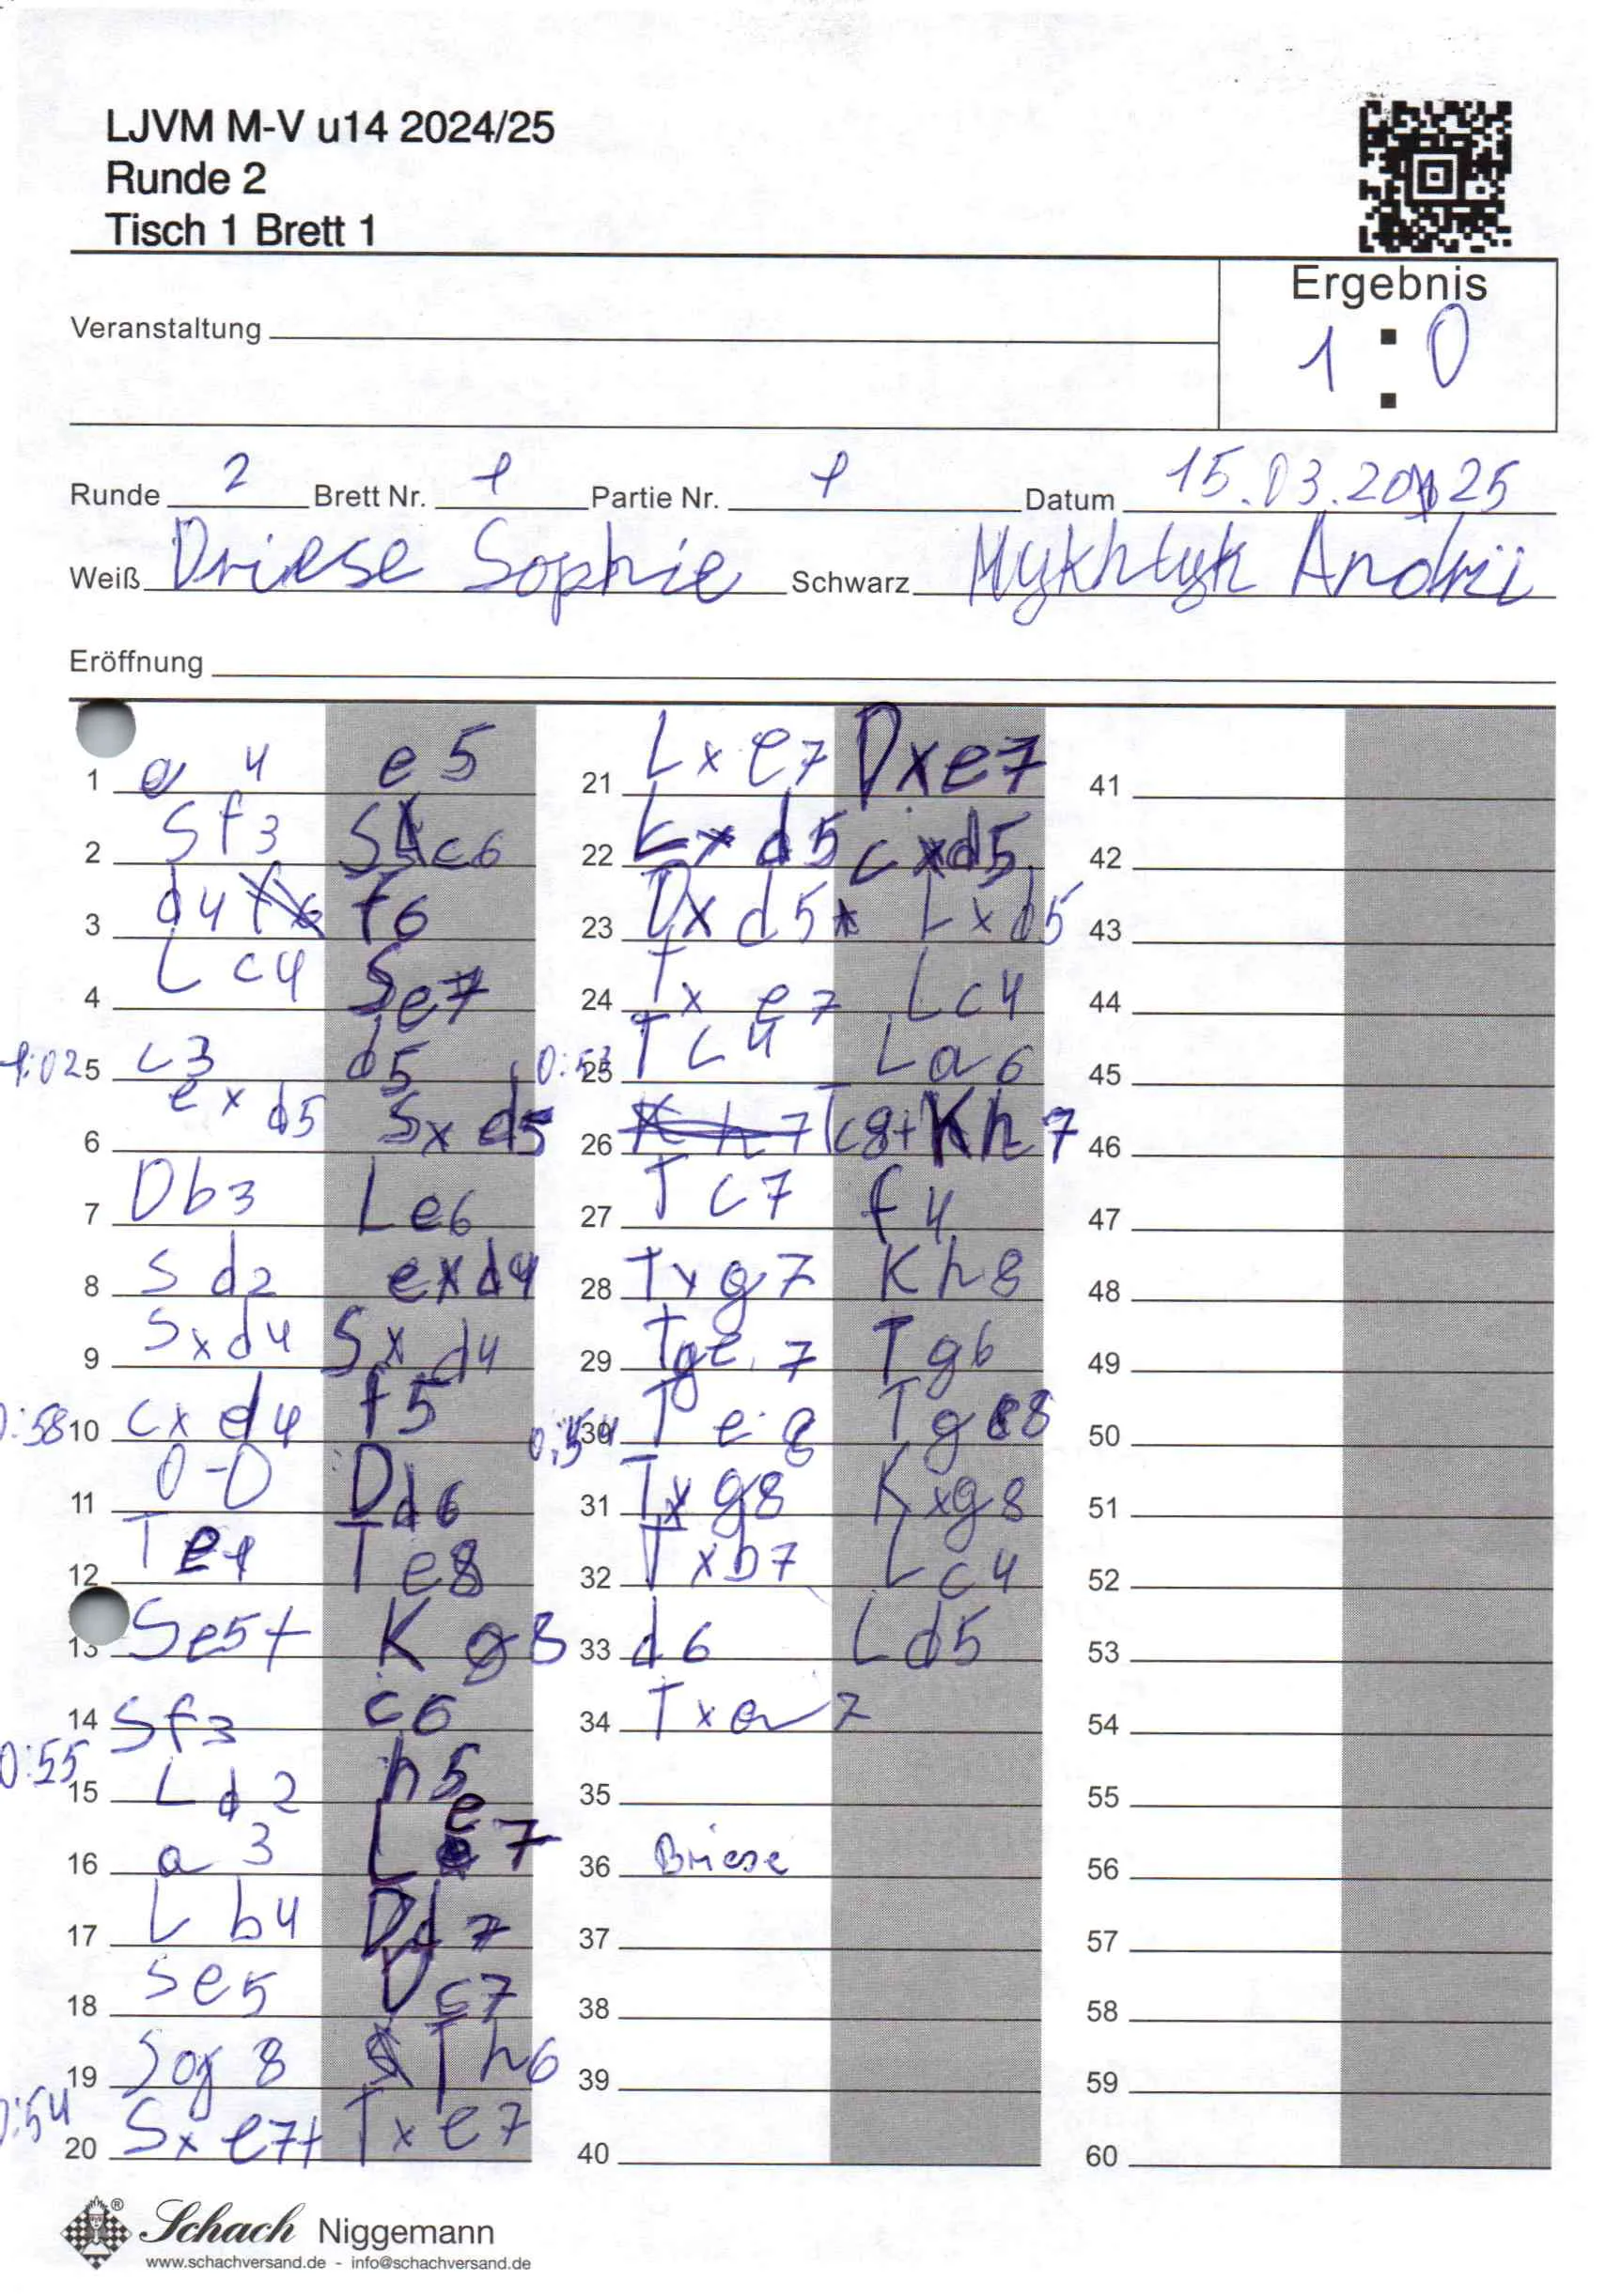 LJVM M-V u14 2024/25
Runde 2
Tisch 1 Brett 1
Ergebnis
1 : 0
Veranstaltung
Runde 2 Brett Nr. 1 Partie Nr. 1 Datum 15.03.2025
Weiß Driese Sophie Schwarz Mykhlyk Andrii
Eröffnung
1 e4 e5
2 Sf3 Sc6
3 d4 f6
4 Lc4 Se7
1:02 5 c3 d5
6 exd5 Sxd5
7 Db3 Le6
8 Sd2 exd4
9 Sxd4 Sxd4
0:58 10 cxd4 f5
11 0-0 Dd6
12 Te1 Te8
13 Se5+ Kg8
14 Sf3 c6
0:55 15 Ld2 h5
16 a3 Le7
17 Lb4 Dd7
18 Se5 Dc7
19 Sg8 Th6
0:54 20 Sxe7+ Txe7
21 Lxe7 Dxe7
22 Lxd5 cxd5
23 Dxd5 Lxd5
24 Txe7 Lc4
25 Tc4 La6
26 Tc8+ Kh7
27 Tc7 f4
28 Txg7 Kh8
29 Tge7 Tg6
0:54 30 Te8 Tg8
31 Txg8 Kxg8
32 Txb7 Lc4
33 d6 Ld5
34 Txa7
35
36 Briese
37
38
39
40
41
42
43
44
45
46
47
48
49
50
51
52
53
54
55
56
57
58
59
60
Schach Niggemann
www.schachversand.de - info@schachversand.de